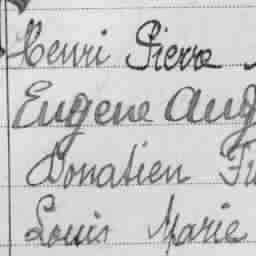 Henri Pierre
Eugene Aug
Donatien Fr
Louis Marie